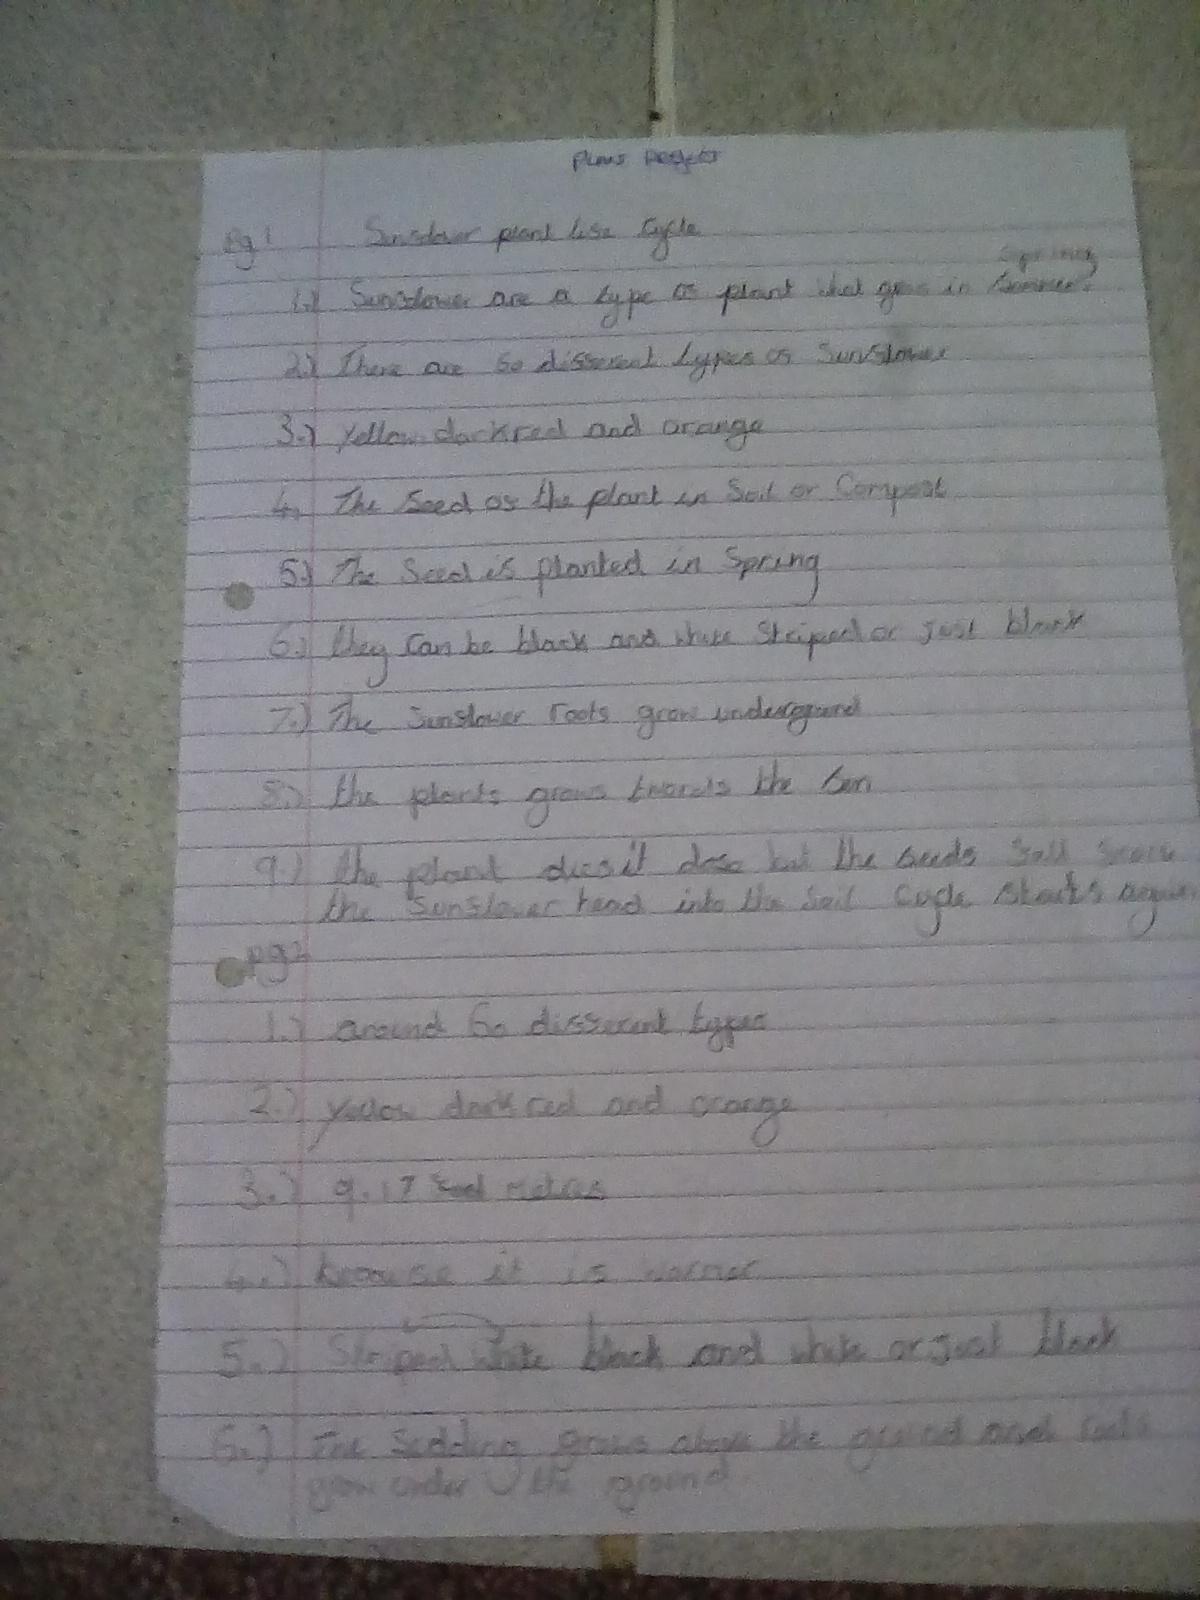 Plant Project
Pg 1 Sunflower plant life Cycle
Spring
1.) Sunflower are a type of plant what grow in Summer.
2.) There are 60 different types of Sunflower
3.) yellow dark red and orange
4. The Seed of the plant in Soil or Compost
5.) The Seed is planted in Spring
6.) they can be black and white Striped or just black
7.) The Sunflower roots grow underground
8.) the plants grows twords the Sun
9.) the plant dies it dose but the seeds fall from
the Sunflower head into the Soil Cycle Starts again
pg2
1.) around 60 different types
2.) yellow dark red and orange
3.) 9.17 metres
4.) because it is warmer
5.) Striped white black and white or just black
6.) The Seedling grows above the ground and roots
grow under the ground